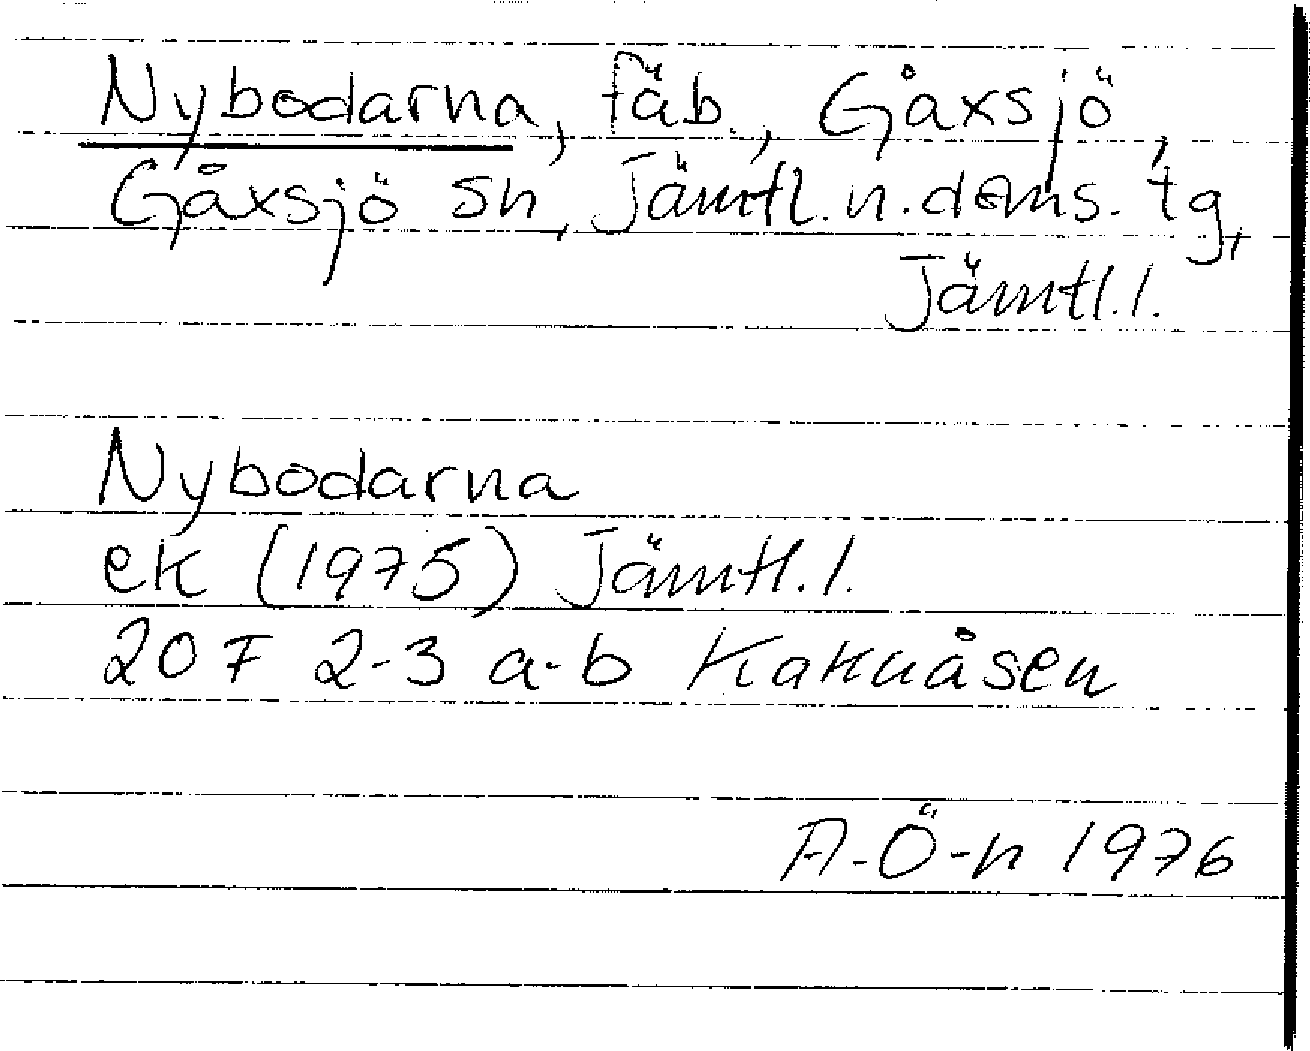 Nybodarna, fäb., Gåxsjö,
Gåxsjö sn, Jämtl. n. doms. tg,
Jämtl. l.
Nybodarna
ek (1975) Jämtl. l.
20 F 2-3 a-b Kaknåsen
A-Ö-n 1976